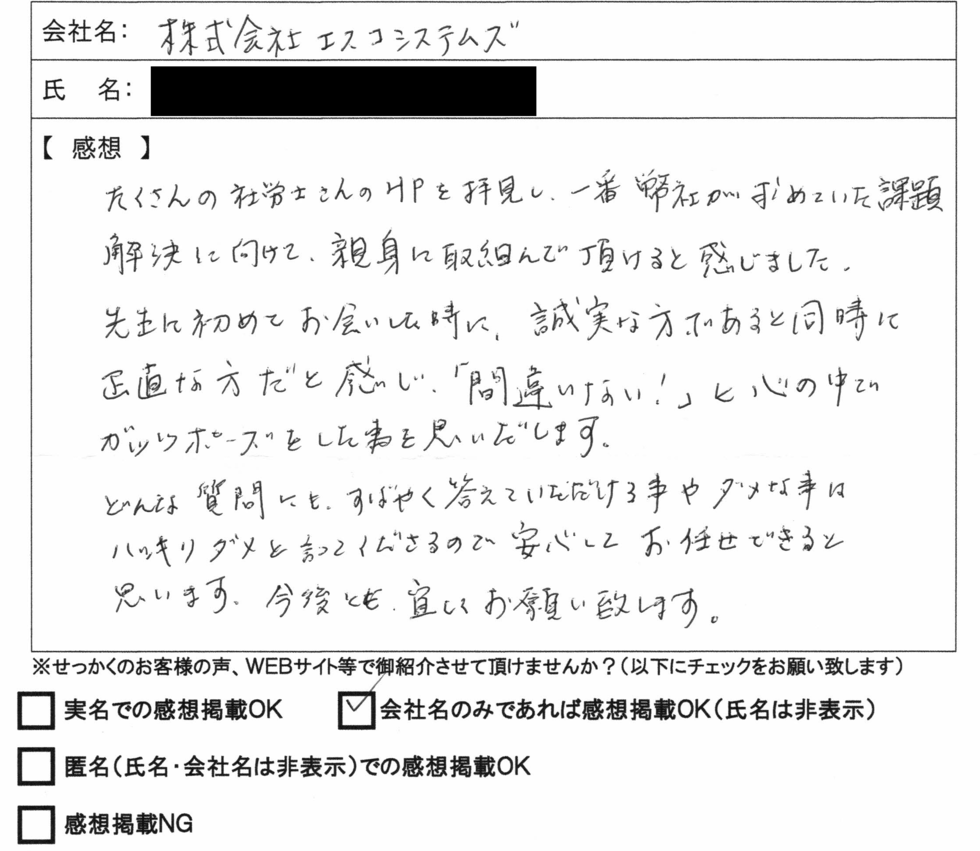 会社名： 株式会社エスコシステムズ
氏　名：
【 感想 】
たくさんの社労士さんのHPを拝見し、一番弊社が求めていた課題
解決に向けて、親身に取組んで頂けると感じました。
先生に初めてお会いした時に、誠実な方であると同時に
正直な方だと感じ、「間違いない！」と心の中で
ガッツポーズをした事を思いだします。
どんな質問にも、すばやく答えていただける事やダメな事は
ハッキリダメと言ってくださるので安心してお任せできると
思います。今後とも、宜しくお願い致します。
※せっかくのお客様の声、WEBサイト等で御紹介させて頂けませんか？（以下にチェックをお願い致します）
□ 実名での感想掲載OK　☑ 会社名のみであれば感想掲載OK（氏名は非表示）
□ 匿名（氏名・会社名は非表示）での感想掲載OK
□ 感想掲載NG